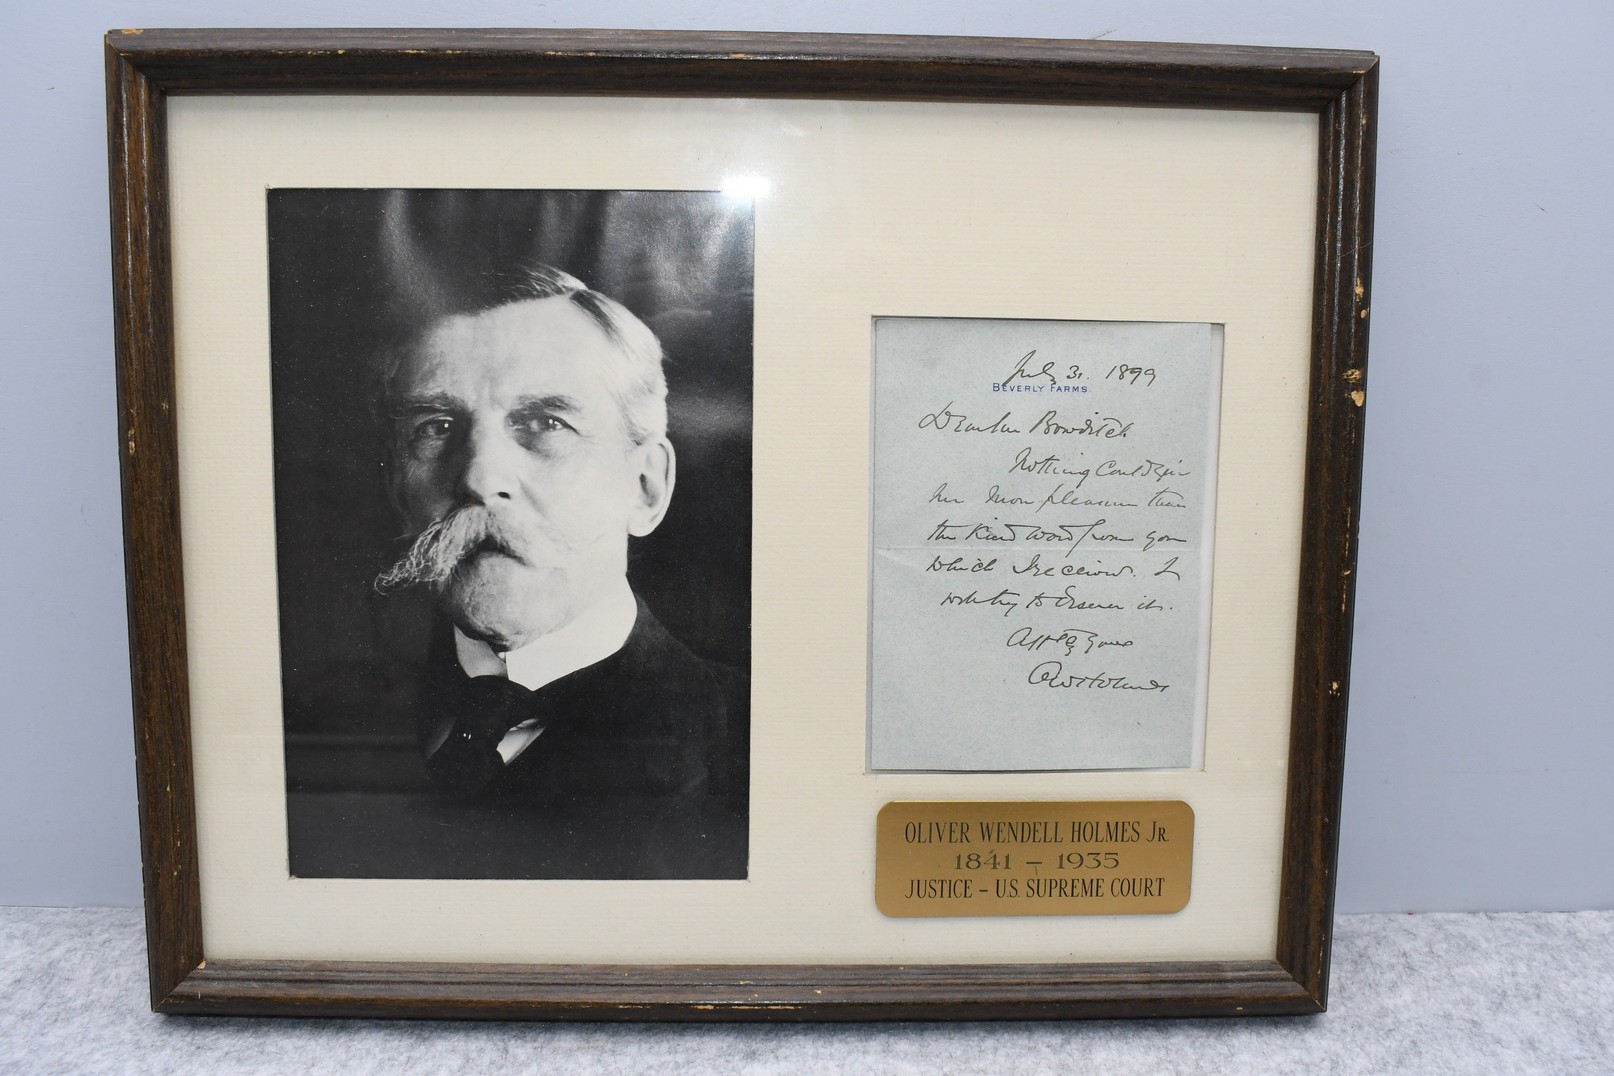 July 31. 1899
BEVERLY FARMS.
Dear Bowditch
Nothing could give
me more pleasure than
the kind word from you
which I received. I
will try to deserve it.
Yours
OWHolmes
OLIVER WENDELL HOLMES JR.
1841 – 1935
JUSTICE – U.S. SUPREME COURT